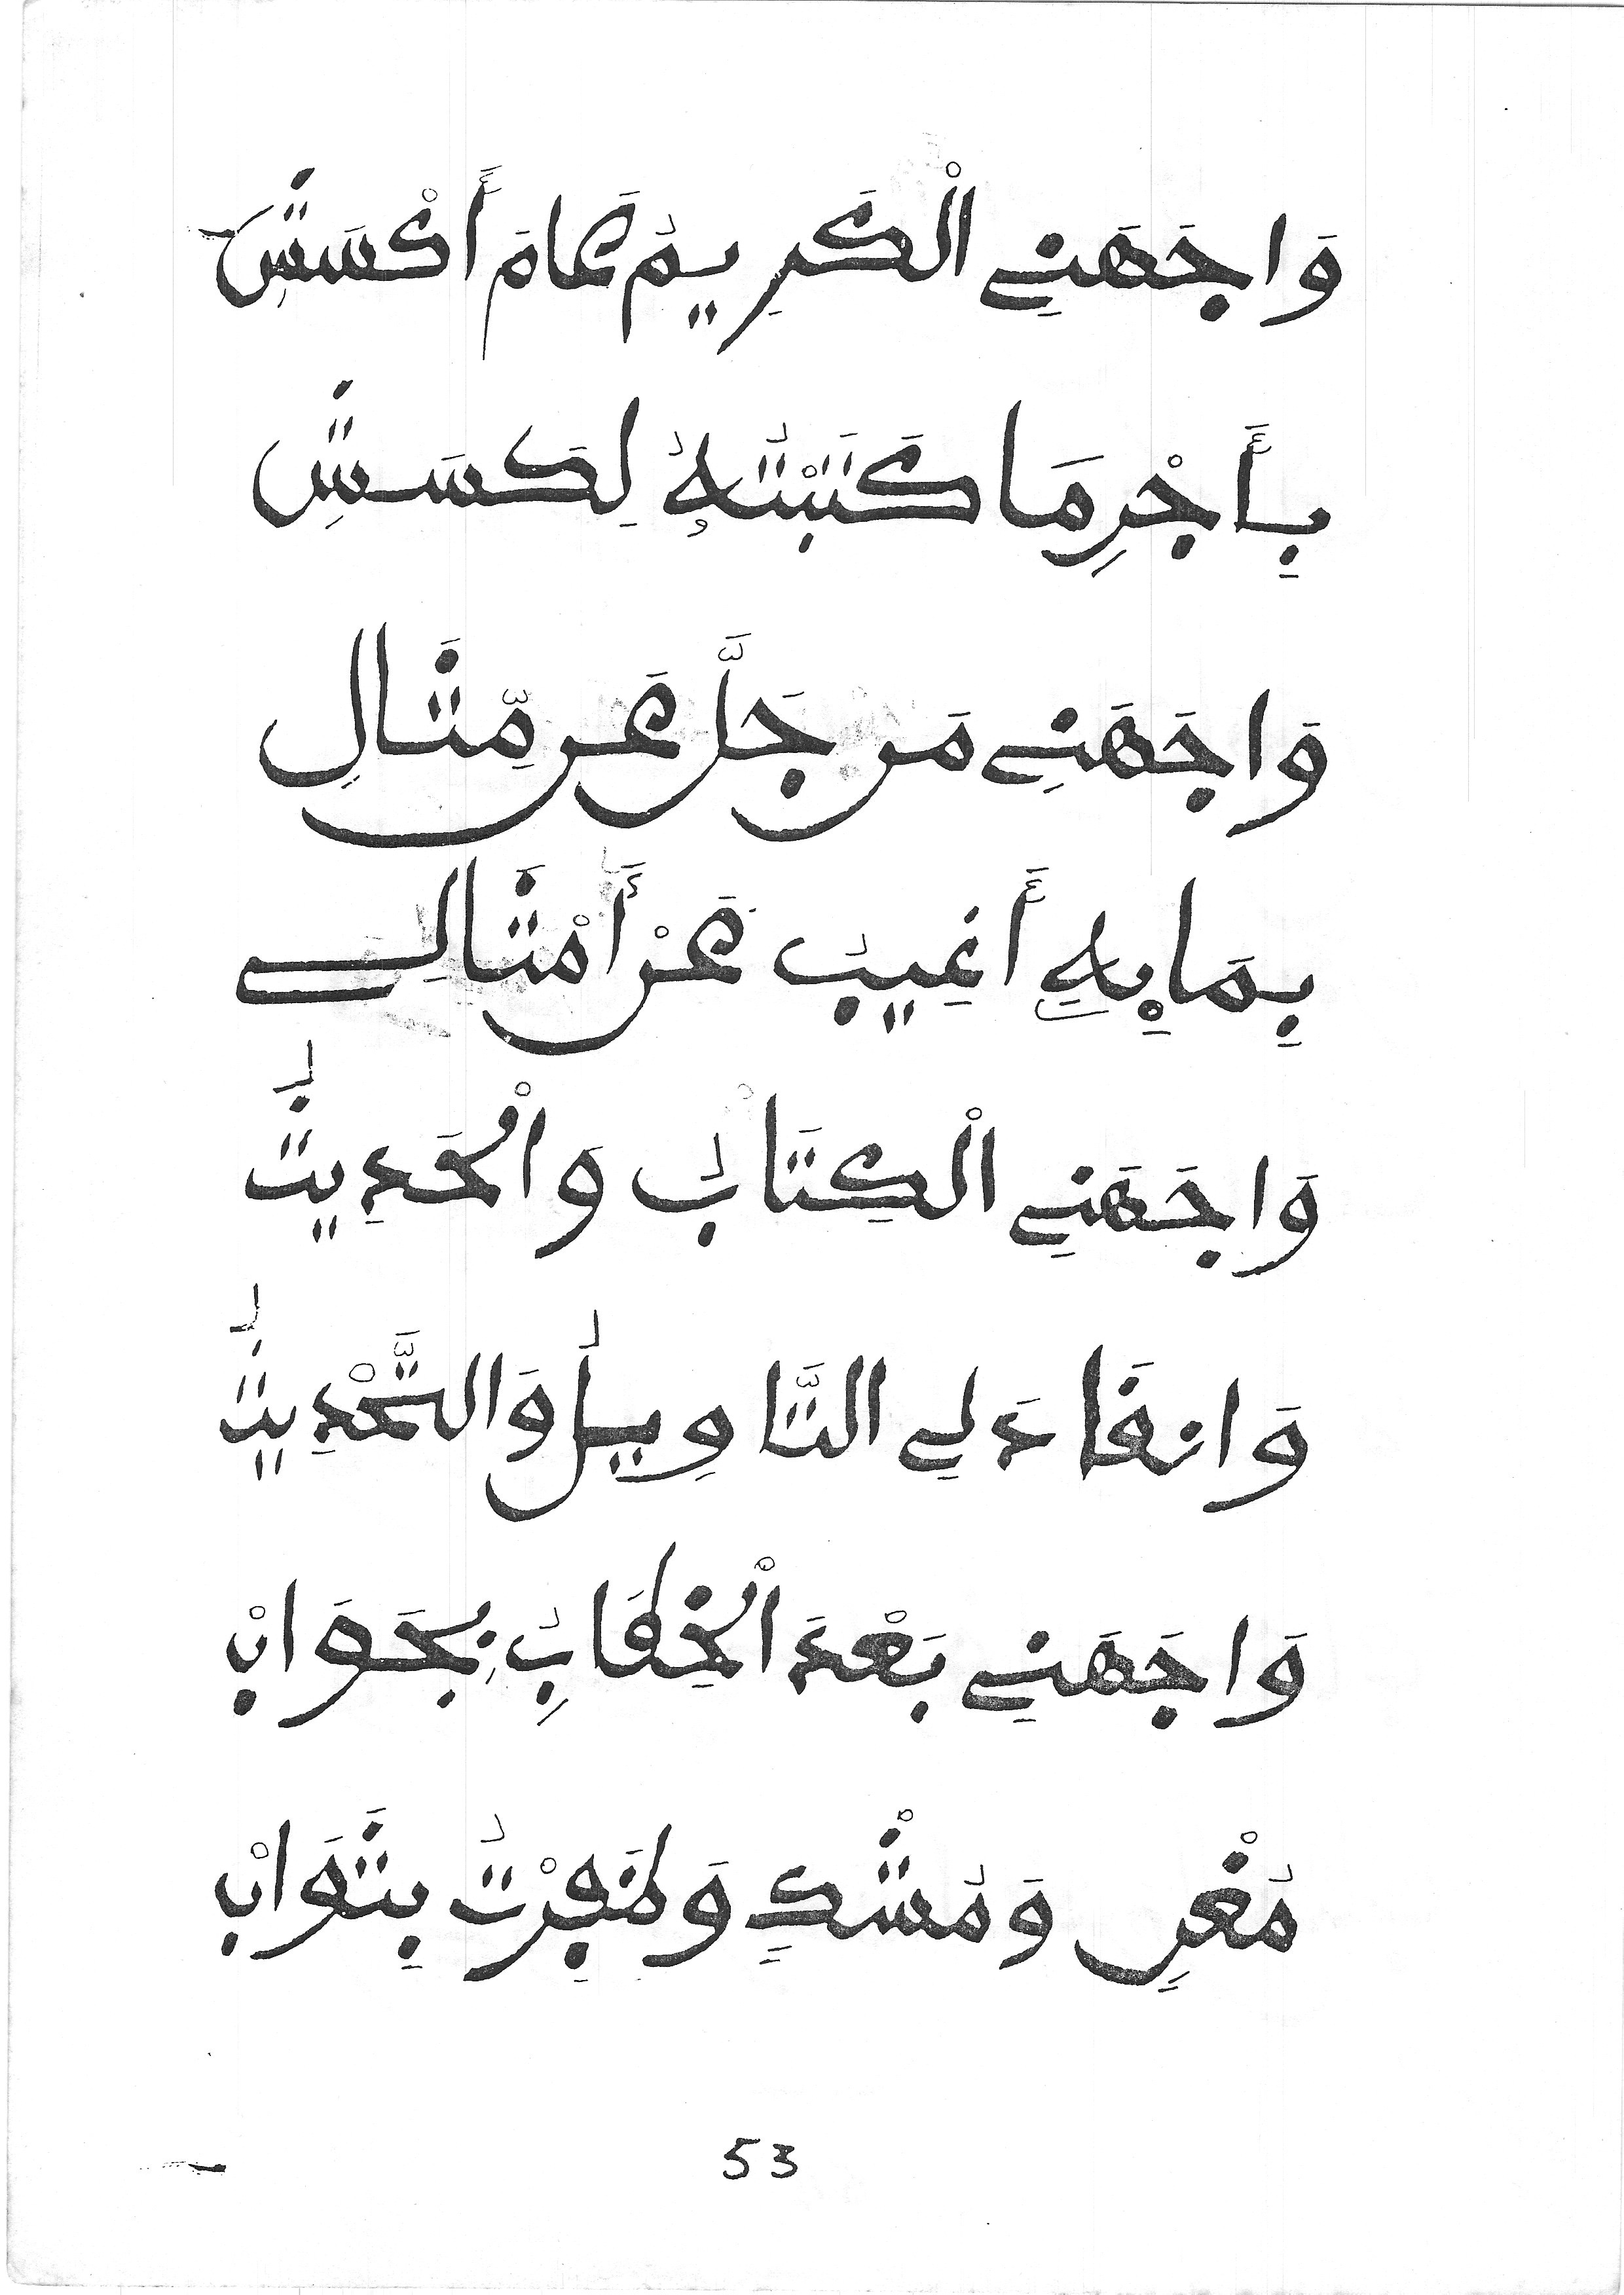 وَاجَهَنِي الْكَرِيمُ عَامَ أَكْسَشِ
بِأَجْرِ مَا كَتَبْتُهُ لِكَسَشِ
وَاجَهَنِي مَن جَلَّ عَن مِّثَالِ
بِمَا بِهِ أَغِيبُ عَنْ أَمْثَالِي
وَاجَهَنِي الْكِتَابُ وَالْحَدِيثُ
وَانقَادَ لِي التَّاوِيلُ وَالتَّحْدِيثُ
وَاجَهَنِي بَعْدَ الْخِطَابِ بِجَوَابْ
مُغْنٍ وَمُشْكٍ وَظَفِرْتُ بِثَوَابْ
53